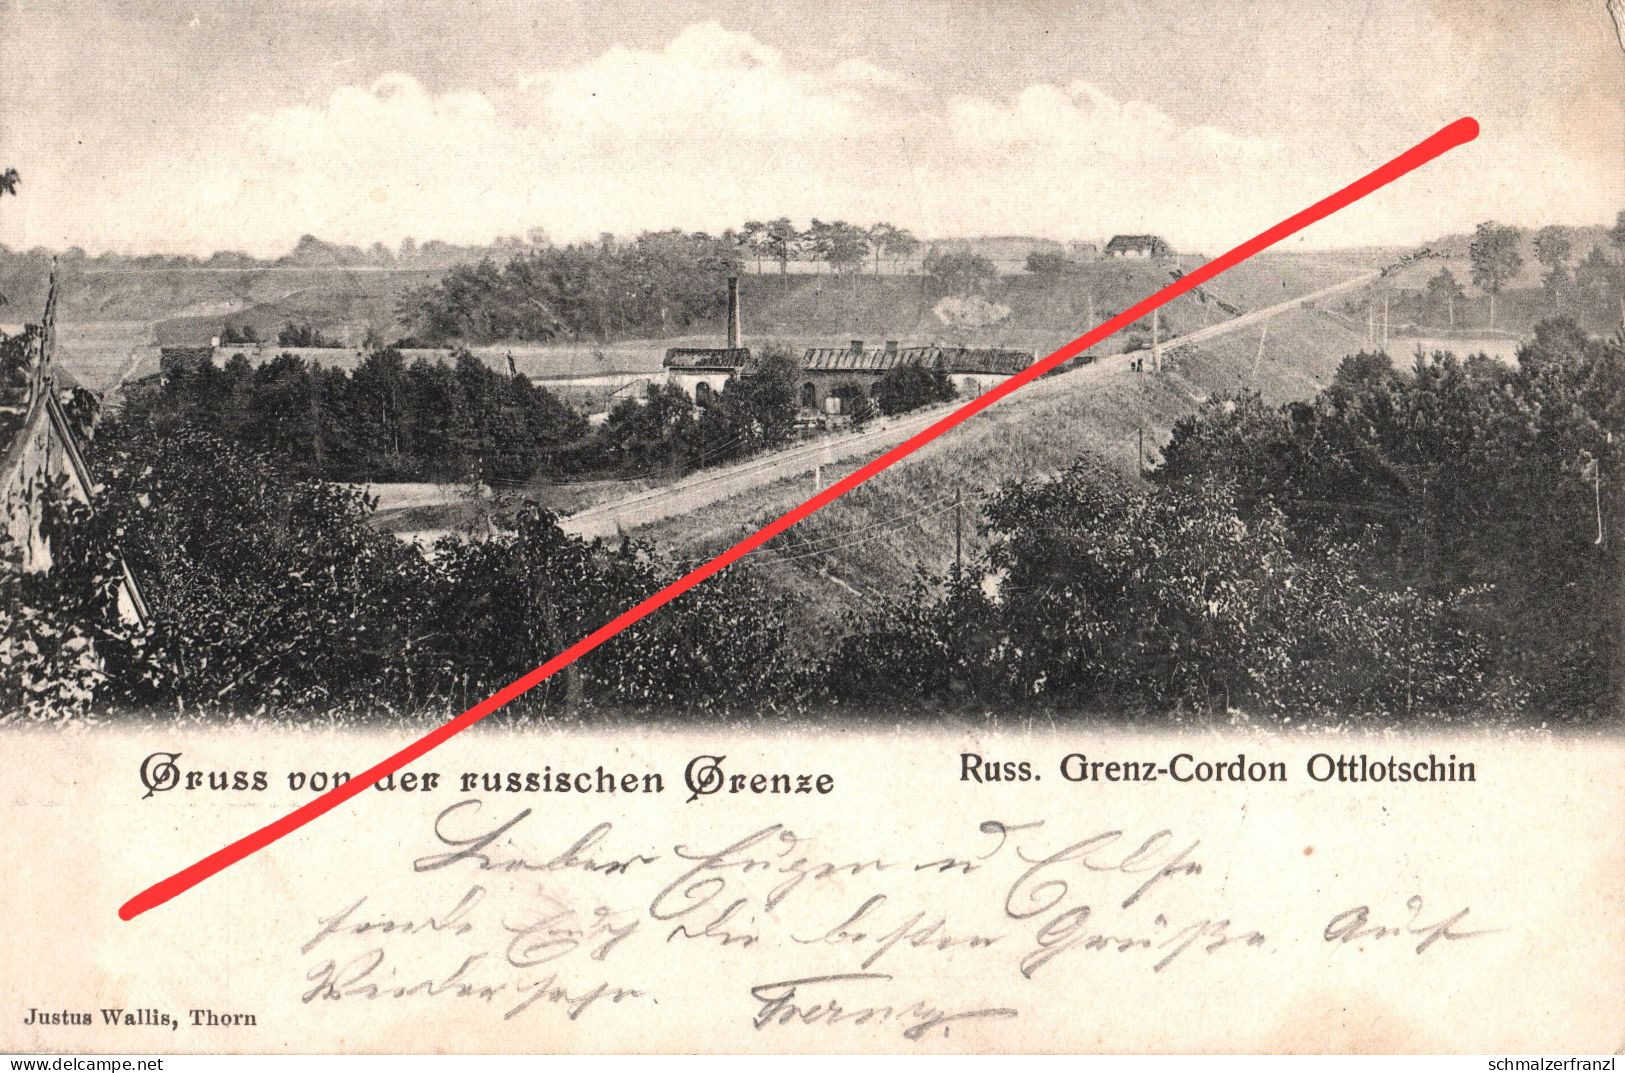 Gruss von der russischen Grenze
Russ. Grenz-Cordon Ottlotschin
Lieber Eugen u Else
sende Euch die besten Grüße. Auf
Wiedersehn.
Justus Wallis, Thorn
delcampe.net
schmalzerfranzl